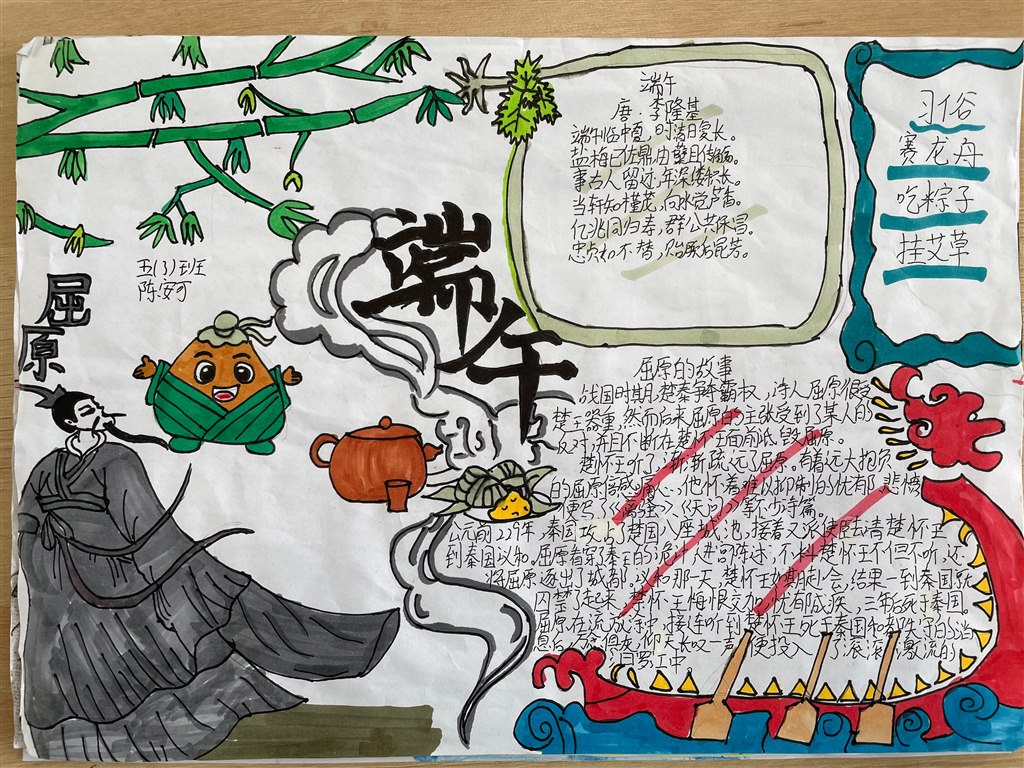 五(3)班
陈安可
屈原
端午
端午
唐·李隆基
端午临中夏,时清日复长。
盐梅已佐鼎,曲糵且传觞。
事古人留迹,年深缕积长。
当轩知槿茂,向水觉芦香。
亿兆同归寿,群公共保昌。
忠贞如不替,贻厥后昆芳。
习俗
赛龙舟
吃粽子
挂艾草
屈原的故事
战国时期,楚秦争夺霸权,诗人屈原很受
楚王器重,然而后来屈原的主张受到了某人的
反对,并且不断在楚怀王面前诋毁屈原。
楚怀王听了,渐渐疏远了屈原。有着远大抱负
的屈原倍感痛心,他怀着难以抑制的忧郁悲愤
便写了《离骚》、《天问》等不少诗篇。
公元前229年,秦国攻占楚国八座城池,接着又派使臣去请楚怀王
到秦国议和。屈原看穿了秦王的诡计,进宫陈述,不料楚怀王不但不听,还
将屈原逐出了城都。议和那一天,楚怀王如期赴会,结果一到秦国就
囚禁了起来,楚怀王悔恨交加,忧郁成疾,三年后死于秦国。
屈原在流放途中,接连听到楚怀王死于秦国和
仰天长叹一声,便投入了滚滚激流的
汨罗江中。